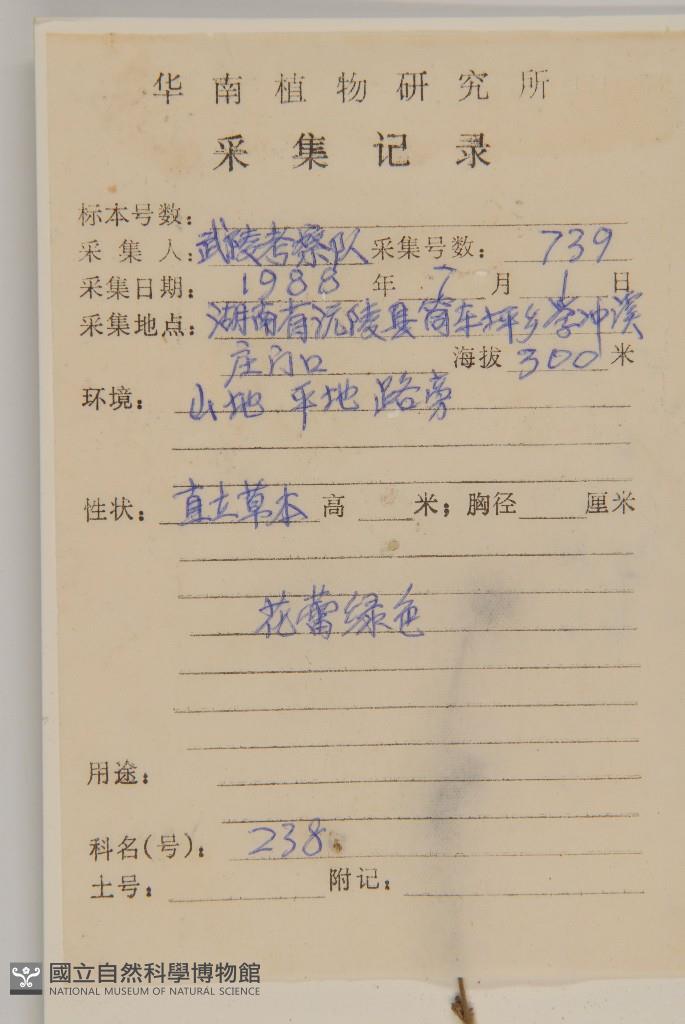 华南植物研究所
采集记录
标本号数:
采集人: 武陵考察队 采集号数: 739
采集日期: 1988 年 7 月 1 日
采集地点: 湖南省沅陵县筒车坪乡 冲溪
庄门口 海拔 300 米
环境: 山地 平地 路旁
性状: 直立草本 高 米; 胸径 厘米
花蕾绿色
用途:
科名(号): 238
土号: 附记:
國立自然科學博物館
NATIONAL MUSEUM OF NATURAL SCIENCE